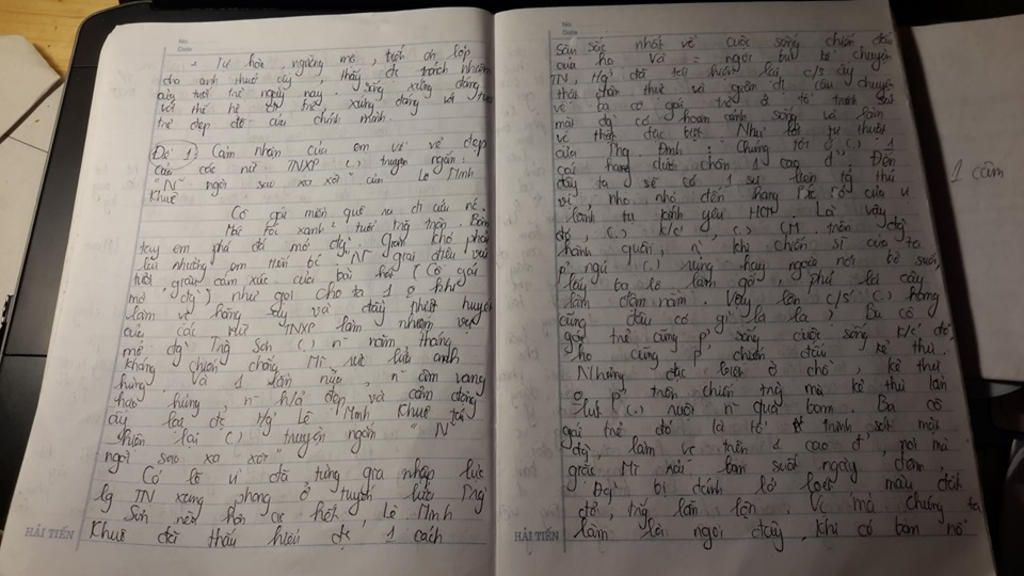 No.
Date
- Tự hào, ngưỡng mộ, biết ơn lớp
cha anh thuở ấy, thấy đc trách nhiệm
của tuổi trẻ ngày nay: sống xứng đáng
với thế hệ đi trc, xứng đáng với tuổi
trẻ đẹp đẽ của chính mình.
Đề 1 Cảm nhận của em về vẻ đẹp
của các nữ TNXP (.) truyện ngắn
"N~ ngôi sao xa xôi" của Lê Minh
Khuê
Cô gái miền quê ra đi cứu nc
Mái tóc xanh tuổi trăng tròn. Bàn
tay em phá đá mở đg'. Gian khó phải
lùi nhường em tiến bc'. N~ giai điệu vui
tươi giàu cảm xúc của bài hát (Cô gái
mở đg') như gợi cho ta 1 o khí
làm vc hăng say và đầy nhiệt huyết
của các nữ TNXP làm nhiệm vụ
mở đg' Trg Sơn (.) n~ năm tháng
kháng chiến chống Mĩ cứu nc anh
hùng. Và 1 lần nữa, n~ âm vang
hào hùng, n~ h/ả đẹp và cảm động
ấy lại đc Lê Minh Khuê tái
hiện lại (.) truyện ngắn "N~
ngôi sao xa xôi"
Có lẽ vì đã từng gia nhập lực
lg TN xung phong ở tuyến lửa Trg'
Sơn nên hơn ai hết, Lê Minh
Khuê đã thấu hiểu đc 1 cách
HẢI TIẾN
No.
Date
sâu sắc nhất về cuộc sống chiến đấu
của họ. Và ngòi bút kể chuyện
đã tái hiện lại c/s ấy
thật chân thực và giản dị câu chuyện
về ba cô gái trẻ ở tổ trinh sát
mặt đg' có hoàn cảnh sống và làm
vc thật đặc biệt. Như lời tự thuật
của Phg Định: "Chúng tôi ở (.) 1
cái hang dưới chân 1 cao đ'". Đến
đây ta sẽ có 1 sự liên tg thú
vị, nho nhỏ đến hang Pắc Bó của vị
lãnh tụ kính yêu HCM. Là vậy
đó, (.) k/c', (.) CM, trên đg'
hành quân, n~ khi chiến sĩ của ta
p' ngủ (.) rừng hay ngoài nơi bờ suối,
lấy ba lô làm gối, phủ lá cây
làm đệm nằm. Vậy lên c/s (.) hang
cũng đâu có gì là lạ? Ba cô
gái trẻ cũng p' sống cuộc sống k/c' đó,
họ cũng p' chiến đấu kẻ thù.
Nhưng đặc biệt ở chỗ, kẻ thù
o p' trên chiến trg mà kẻ thù lẩn
khuất (.) ruột n~ quả bom. Ba cô
gái trẻ đó là tổ trinh sát mặt
đg', làm vc trên 1 cao đ', nơi mà
giặc Mĩ ném bom suốt ngày đêm.
Đg' bị đánh lở loét màu đất
đỏ, trắng lẫn lộn. Vc mà chúng ta
làm là ngồi đấy, khi có bom nổ
HẢI TIẾN
1 cảm